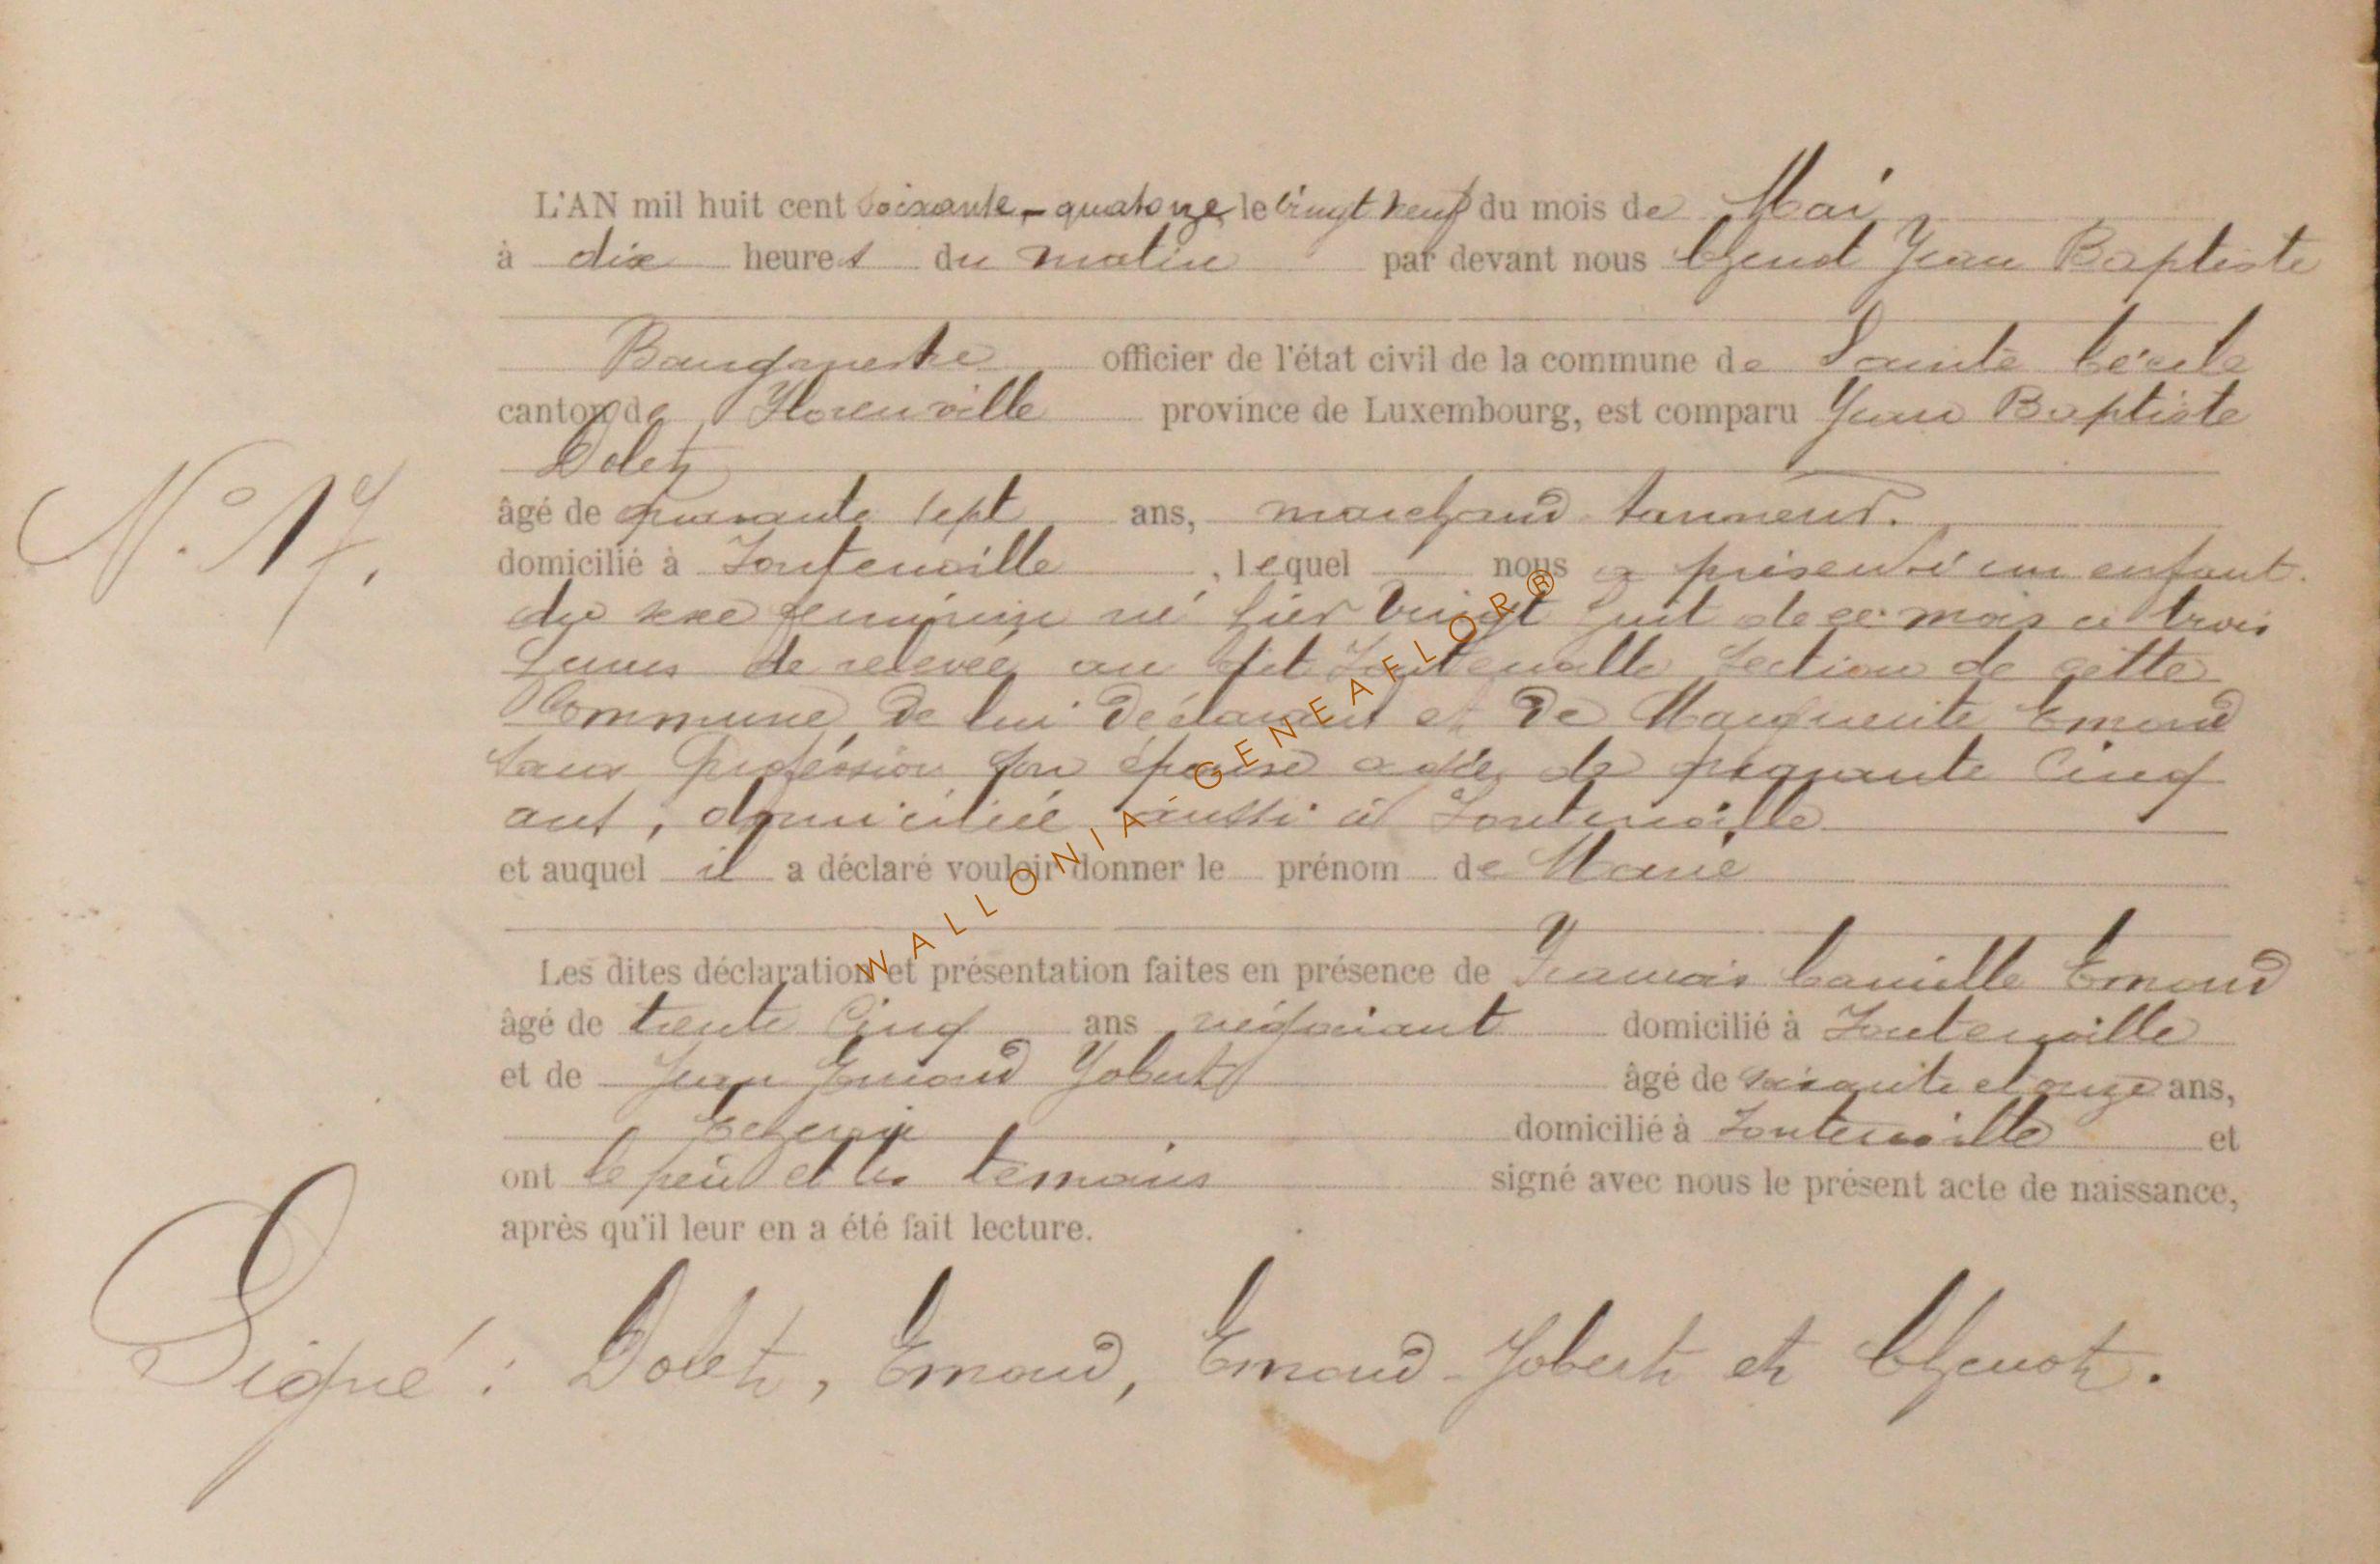 L'AN mil huit cent soixante-quatorze, le vingt neuf du mois de Mai
à dix heures du matin par devant nous Chenot Jean Baptiste
Bourgmestre officier de l'état civil de la commune de Sainte Cécile
canton de Florenville province de Luxembourg, est comparu Jean Baptiste
Dolet
N.° 17.
âgé de quarante sept ans, marchand tanneur.
domicilié à Fontenoille, lequel nous a présenté un enfant.
du sexe feminin né hier vingt huit de ce mois à trois
heures de relevée au dit Fontenoille section de cette
Commune de lui déclarant et de Marguerite Emond
sans profession son épouse agée de quarante cinq
ans, domiciliée aussi à Fontenoille
et auquel il a déclaré vouloir donner le prénom de Marie
Les dites déclaration et présentation faites en présence de François Camille Emond
âgé de trente cinq ans négociant domicilié à Fontenoille
et de Jean Emond Jobert âgé de soixante et onze ans,
Echevin domicilié à Fontenoille et
ont le père et les temoins signé avec nous le présent acte de naissance,
après qu'il leur en a été fait lecture.
Signé : Dolet, Emond, Emond-Jobert et Chenot.
WALLONIA-GENEAFLOR®